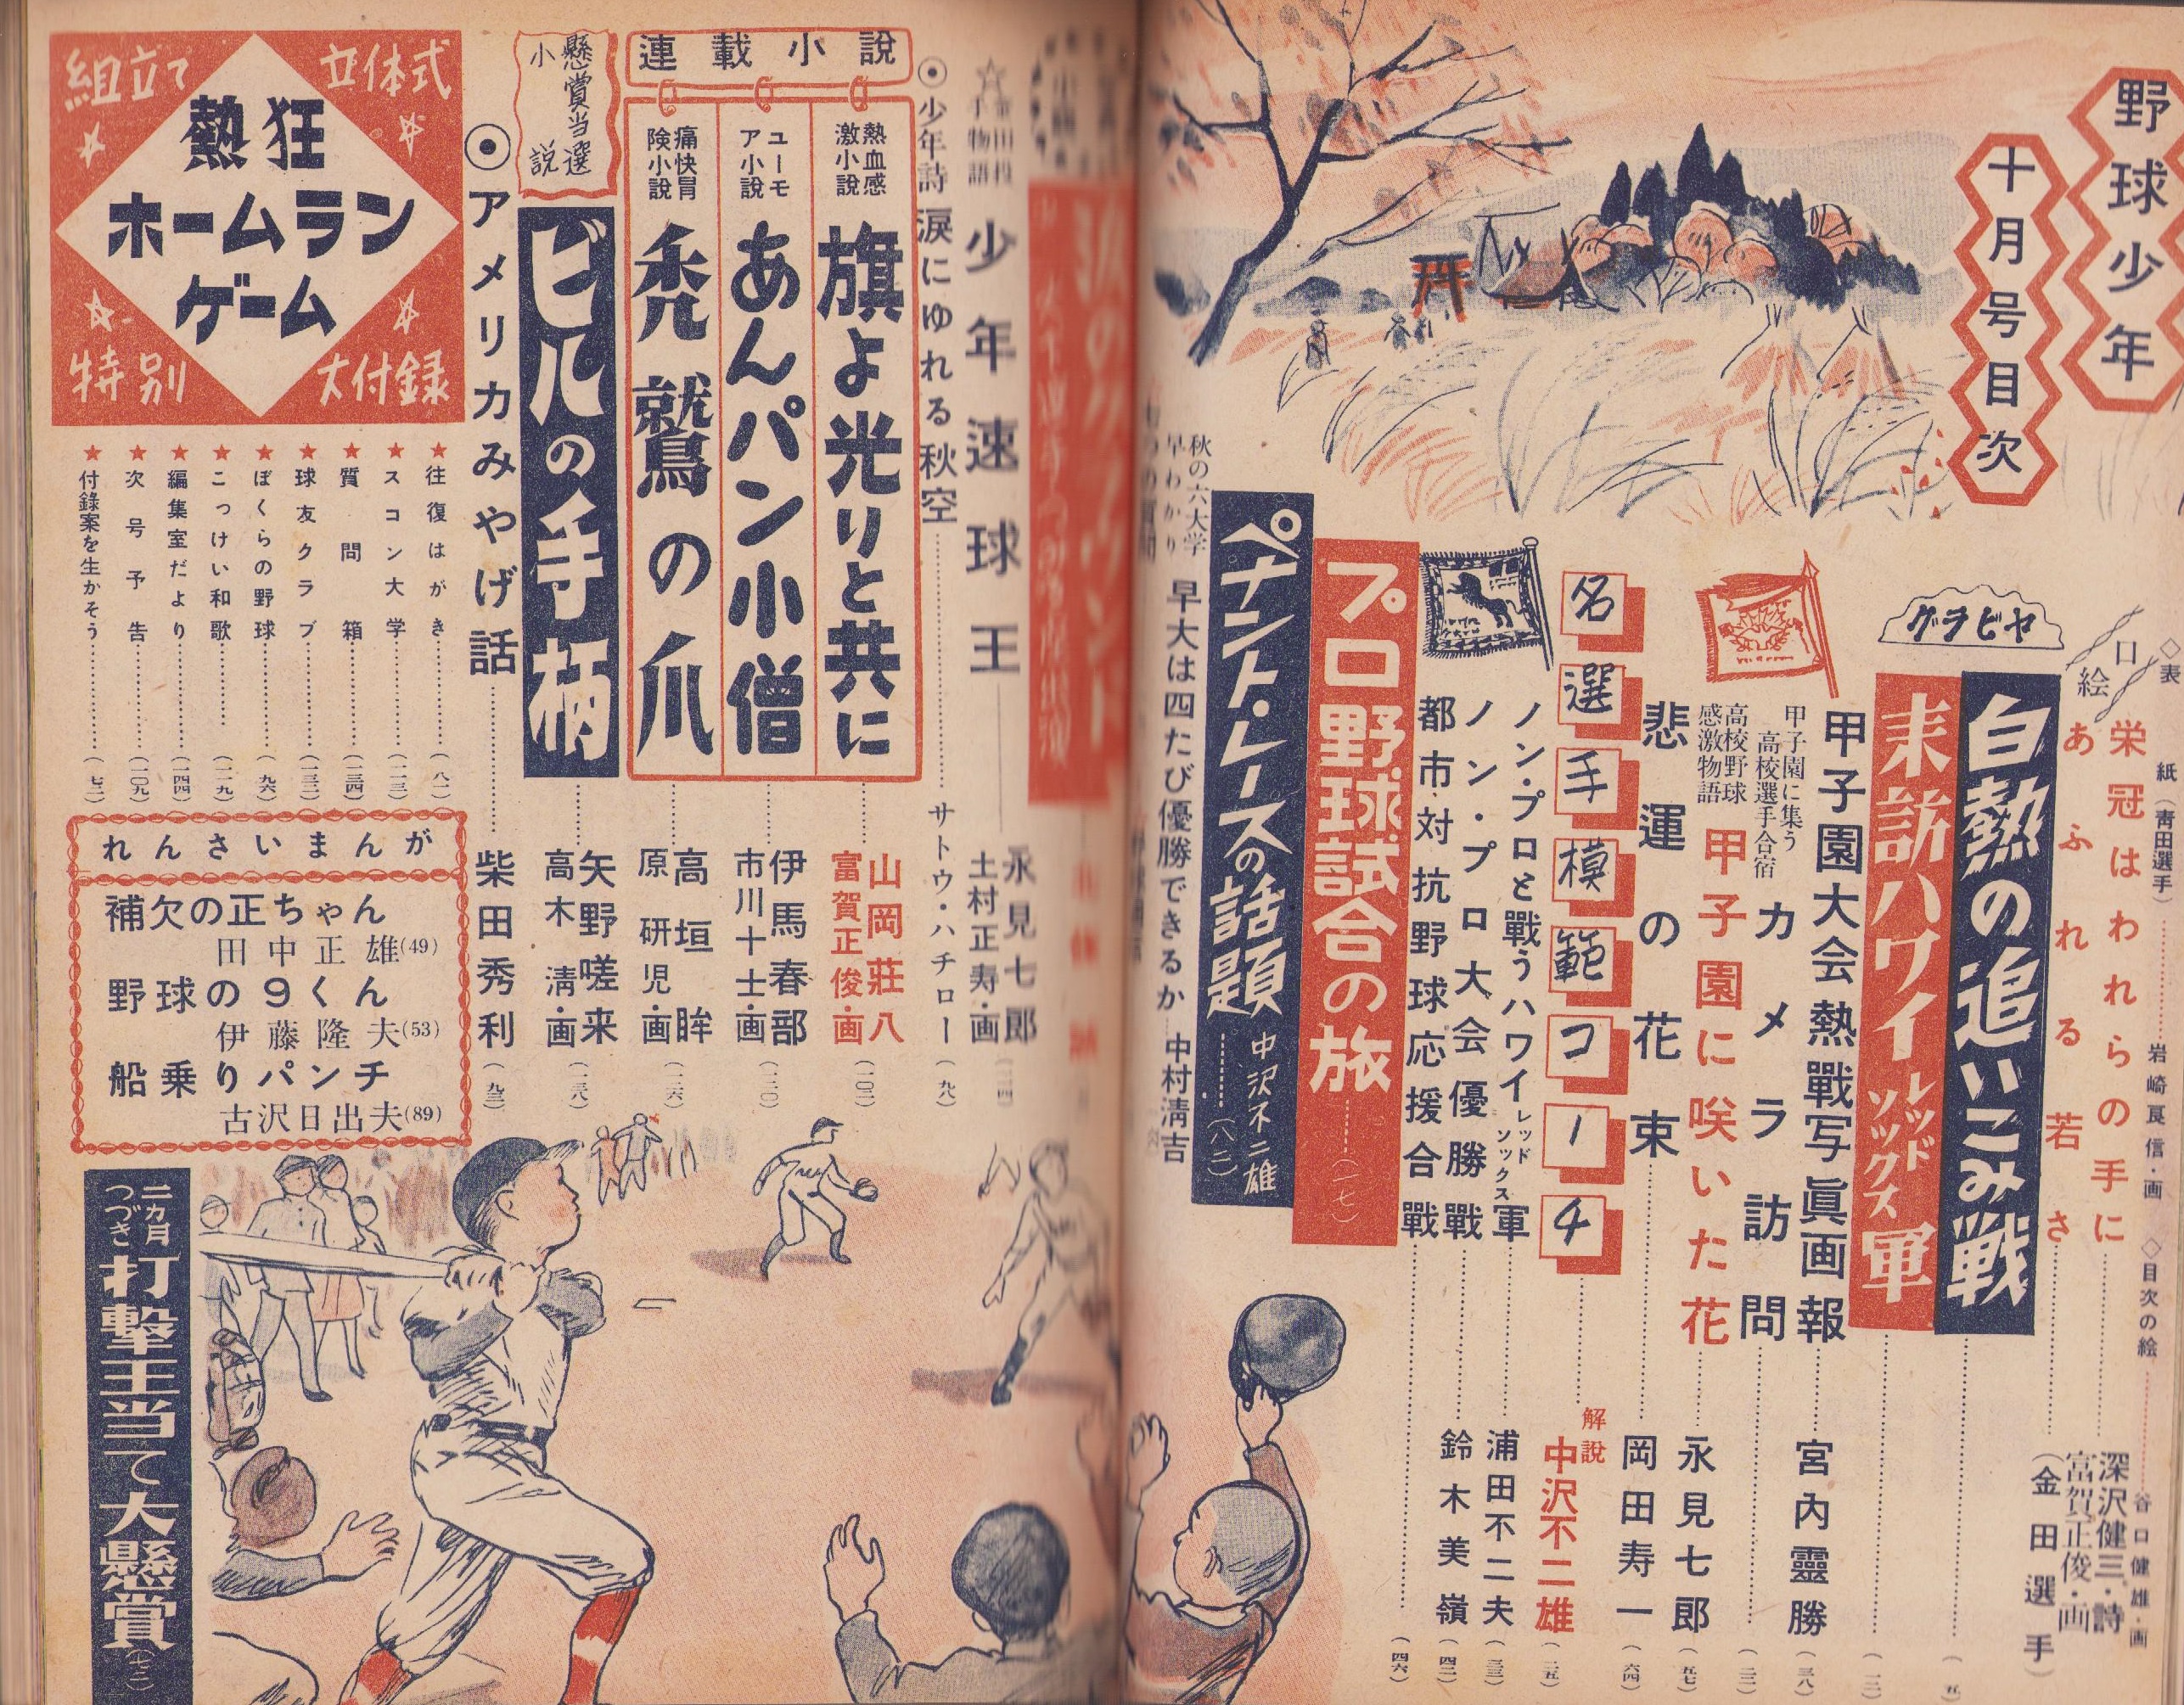 野球少年
十月号目次
◇表紙（青田選手）
岩崎良信・画
◇目次の絵
谷口健雄・画
口絵
栄冠はわれらの手に
深沢健三・詩
富賀正俊・画
あふれる若さ
（金田選手）
グラビヤ
白熱の追いこみ戦
来訪ハワイレッドソックス軍
甲子園大会熱戰写眞画報
宮内靈勝
（三八）
甲子園に集う
高校選手合宿
カメラ訪問
高校野球
感激物語
甲子園に咲いた花
永見七郎
（五七）
悲運の花束
岡田寿一
（六四）
名選手模範コーチ
解説
中沢不二雄
ノン・プロと戰うハワイレッドソックス軍
浦田不二夫
（三三）
ノン・プロ大会優勝戰
鈴木美嶺
（四二）
都市対抗野球応援合戰
（四六）
プロ野球試合の旅
（一七）
ペナント・レースの話題
中沢不二雄
（八二）
秋の六大学
早わかり
早大は四たび優勝できるか
中村清吉
少年速球王
永見七郎
土村正寿・画
少年詩
涙にゆれる秋空
サトウ・ハチロー
（九八）
連載小説
熱血感激小説
旗よ光りと共に
山岡莊八
富賀正俊・画
（一〇二）
ユーモア小説
あんパン小僧
伊馬春部
市川十士・画
（一二〇）
痛快冒険小説
禿鷲の爪
高垣眸
原研児・画
（一二六）
懸賞当選小説
ビルの手柄
矢野嗟来
高木清・画
（一三八）
アメリカみやげ話
柴田秀利
（九三）
組立て
立体式
熱狂
ホームラン
ゲーム
特別
大付録
★往復はがき
（八一）
★スコン大学
（一二三）
★質問箱
（一三四）
★球友クラブ
（一三二）
★ぼくらの野球
（九六）
★こっけい和歌
（一二九）
★編集室だより
（一四四）
★次号予告
（一〇九）
★付録案を生かそう
（七二）
れんさいまんが
補欠の正ちゃん
田中正雄(49)
野球の9くん
伊藤隆夫(53)
船乗りパンチ
古沢日出夫(89)
二ヵ月つづき
打撃王当て大懸賞
（七二）